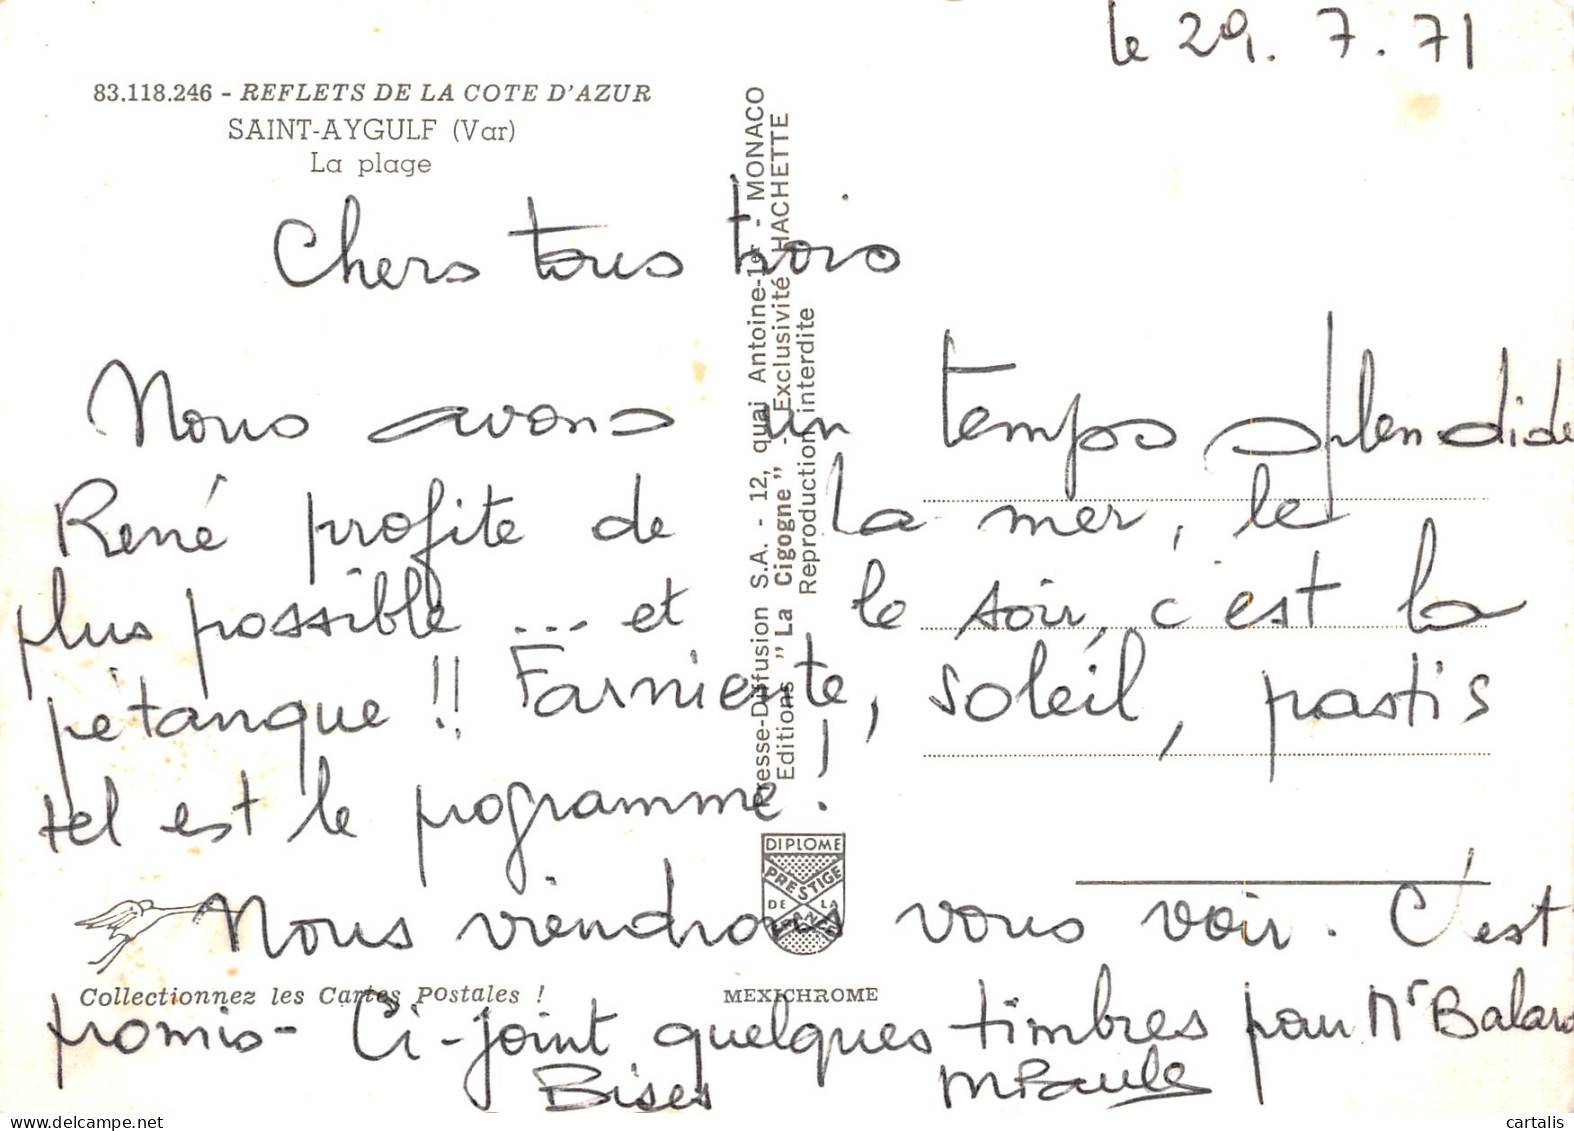 le 29.7.71
83.118.246 - REFLETS DE LA COTE D'AZUR
SAINT-AYGULF (Var)
La plage
Chers tous trois
Nous avons un temps splendide
René profite de la mer, le
plus possible ... et le soir, c'est la
pétanque !! Farniente, soleil, pastis
tel est le programme !
Nous viendrons vous voir. C'est
promis - Ci-joint quelques timbres pour Mr Balard
Bises MPaule
Presse-Diffusion S.A. - 12, quai Antoine-1er - MONACO
Editions "La Cigogne" - Exclusivité HACHETTE
Reproduction interdite
DIPLOME
PRESTIGE
DE LA
FRANCE
Collectionnez les Cartes Postales !
MEXICHROME
www.delcampe.net
cartalis